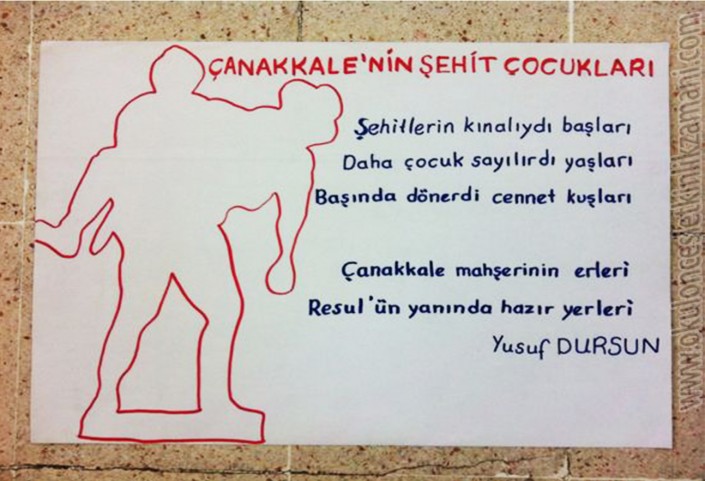 ÇANAKKALE'NİN ŞEHİT ÇOCUKLARI
Şehitlerin kınalıydı başları
Daha çocuk sayılırdı yaşları
Başında dönerdi cennet kuşları
Çanakkale mahşerinin erleri
Resul'ün yanında hazır yerleri
Yusuf DURSUN
www.okuloncesietkinlikzamani.com